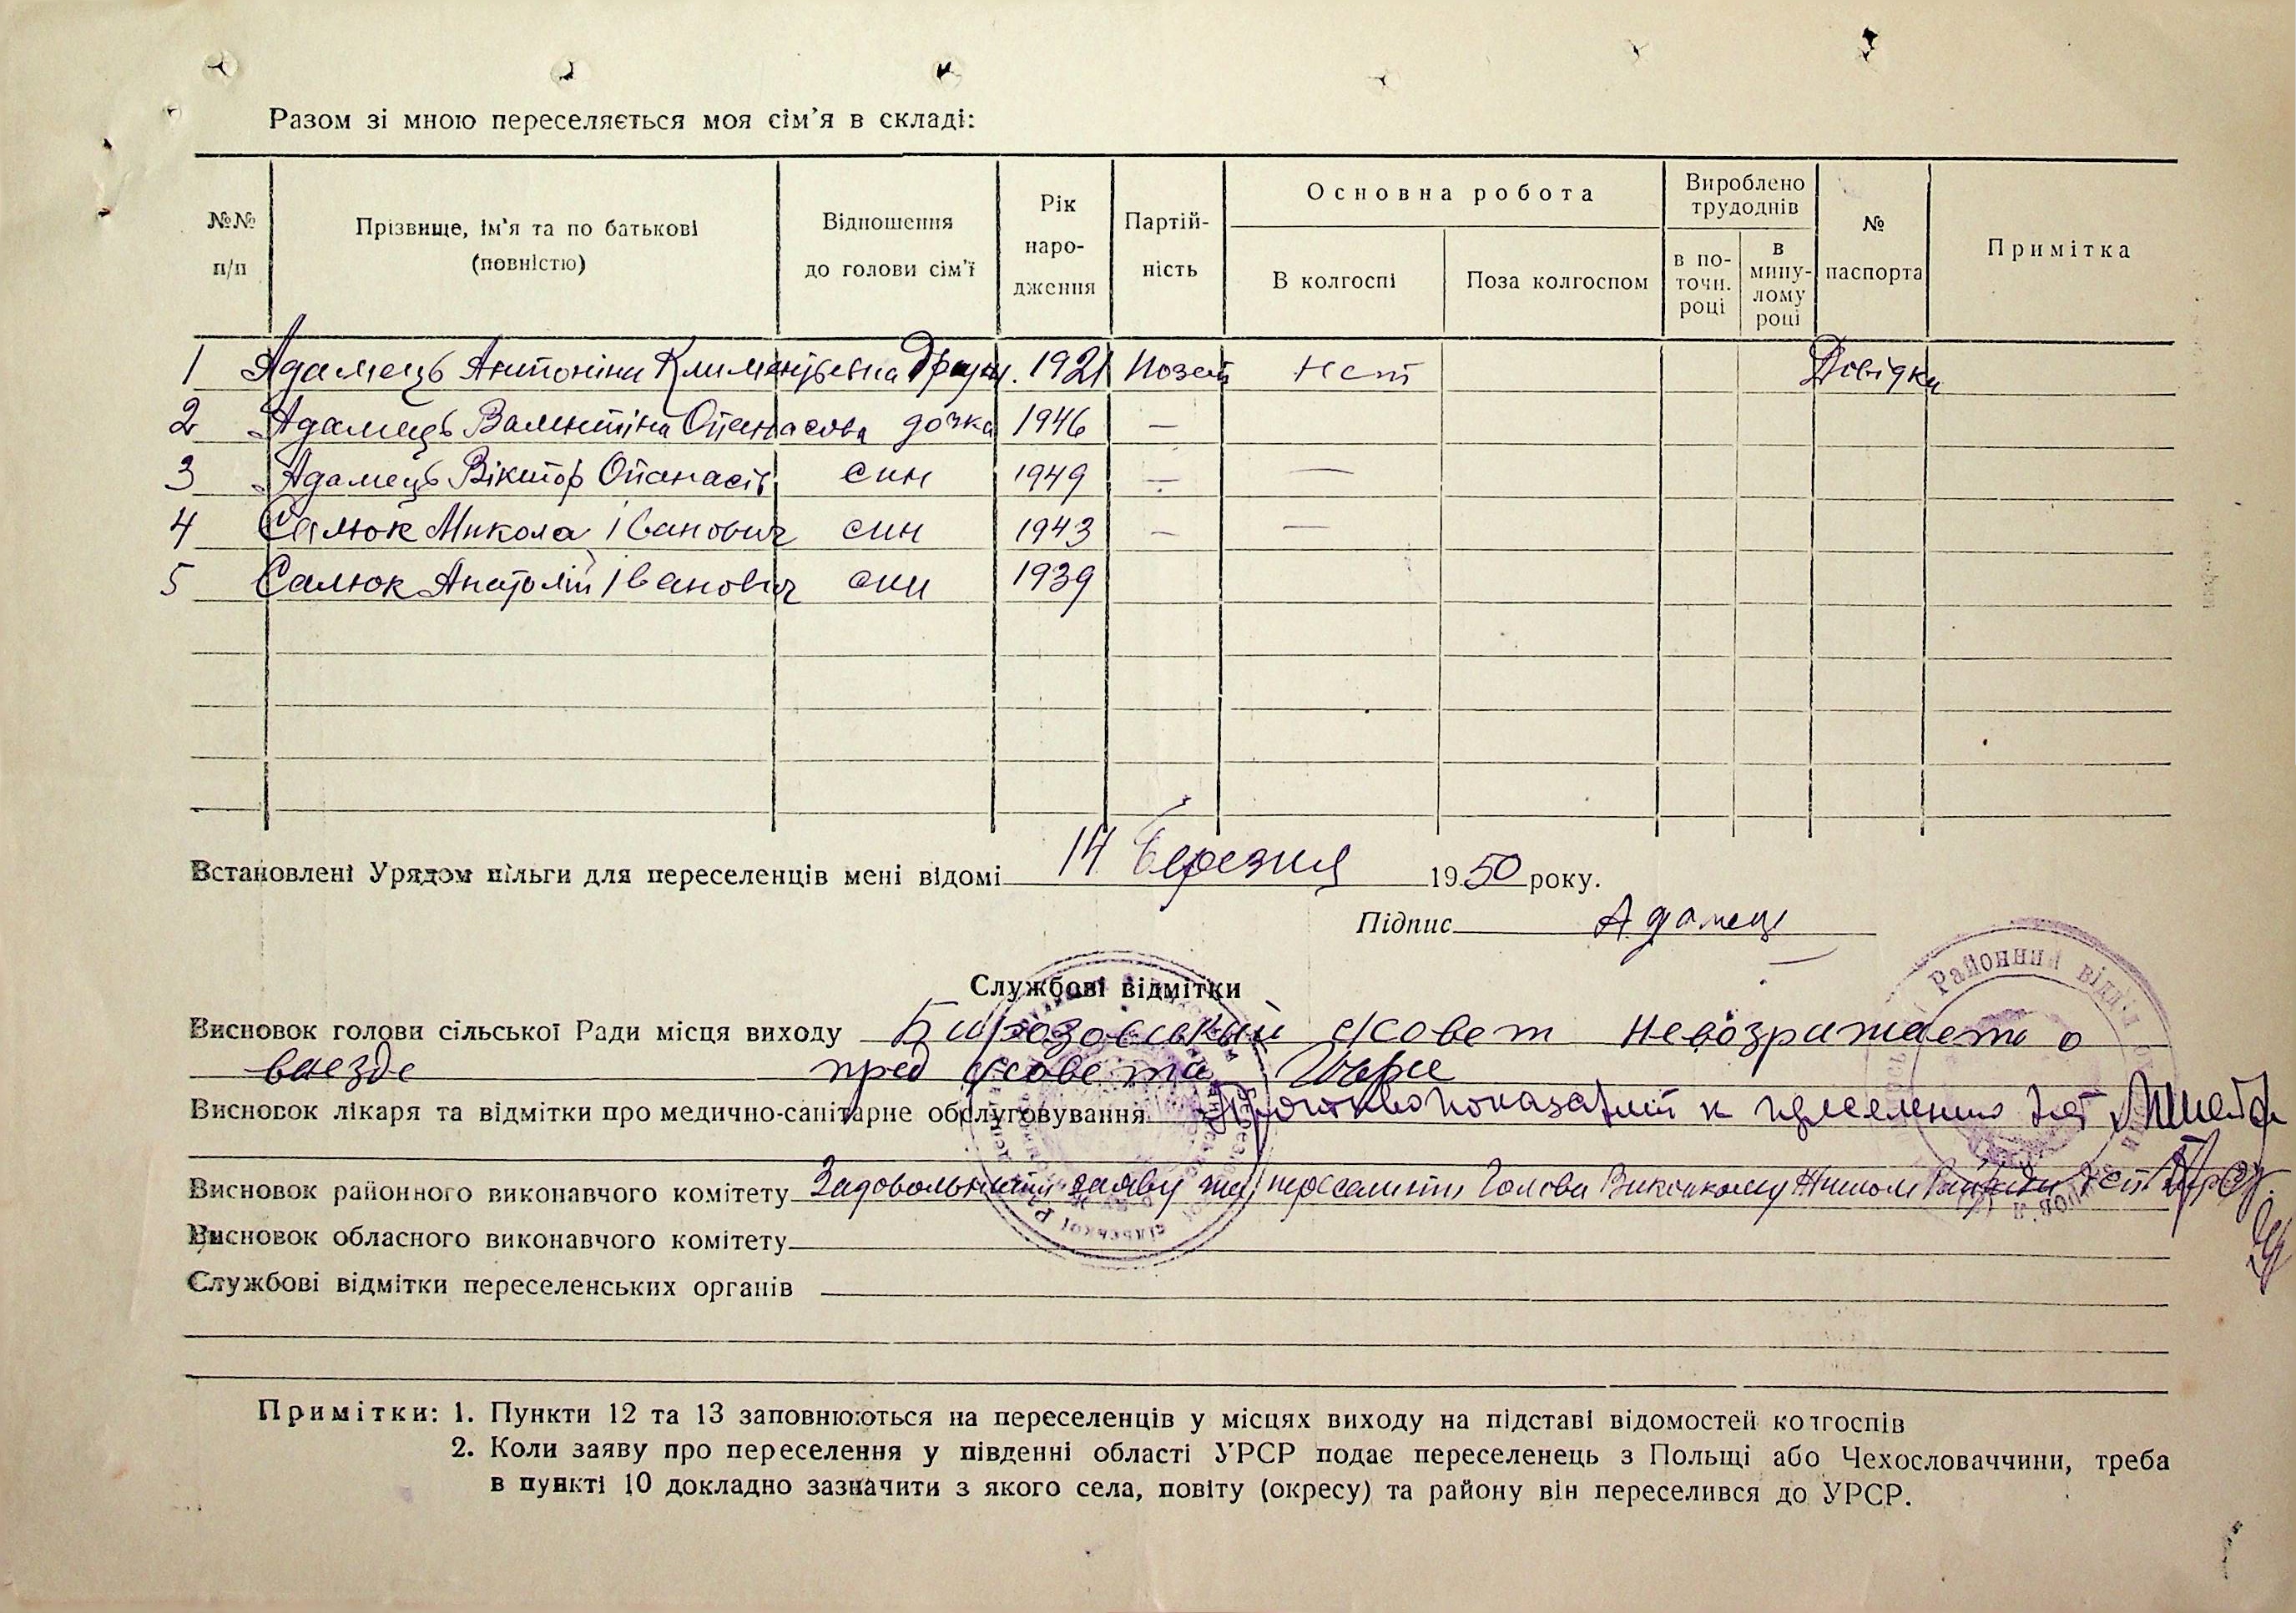 Разом зі мною переселяється моя сім'я в складі:
№№ п/п
Прізвище, ім'я та по батькові (повністю)
Відношення до голови сім'ї
Рік наро- дження
Партій- ність
Основна робота
В колгоспі
Поза колгоспом
Вироблено трудоднів
в по- точн. році
в мину- лому році
№ паспорта
Примітка
1 Адамець Антоніна Климентьевна 1921 нет Довідка
2 Адамець Валентіна Опанасова дочка 1946 —
3 Адамець Віктор Опанасів син 1949 — —
4 Салюк Микола Іванович син 1943 — —
5 Салюк Анатолій Іванович син 1939
Встановлені Урядом пільги для переселенців мені відомі 14 березня 1950 року.
Підпис Адамец
Службові відмітки
Висновок голови сільської Ради місця виходу с/совет невозражает о
выезде пред с/совета
Висновок лікаря та відмітки про медично-санітарне обслуговування к нет
Висновок районного виконавчого комітету Задовольнити заяву та переселити Голова Виконкому
Висновок обласного виконавчого комітету
Службові відмітки переселенських органів
Примітки: 1. Пункти 12 та 13 заповнюються на переселенців у місцях виходу на підставі відомостей колгоспів
2. Коли заяву про переселення у південні області УРСР подає переселенець з Польщі або Чехословаччини, треба
в пункті 10 докладно зазначити з якого села, повіту (окресу) та району він переселився до УРСР.
Районний відділ